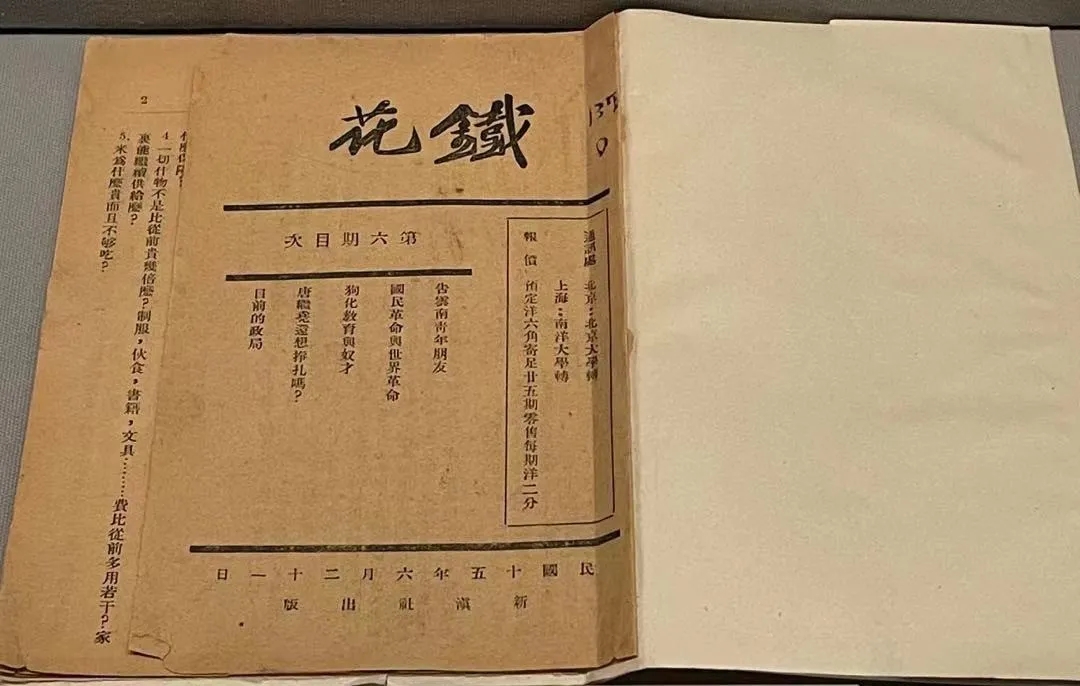 鐵花
137
通訊處 北京:北京大學轉
上海:南洋大學轉
報價 預定洋六角寄足廿五期零售每期洋二分
第六期目次
告雲南青年朋友
國民革命與世界革命
狗化教育與奴才
唐繼堯還想掙扎嗎?
目前的政局
民國十五年六月二十一日
新滇社出版
2
4. 一切什物不是比從前貴幾倍麽?制服,伙食,書籍,文具………費比從前多用若干?家
裏能繼續供給麽?
5. 米爲什麽貴而且不够吃?